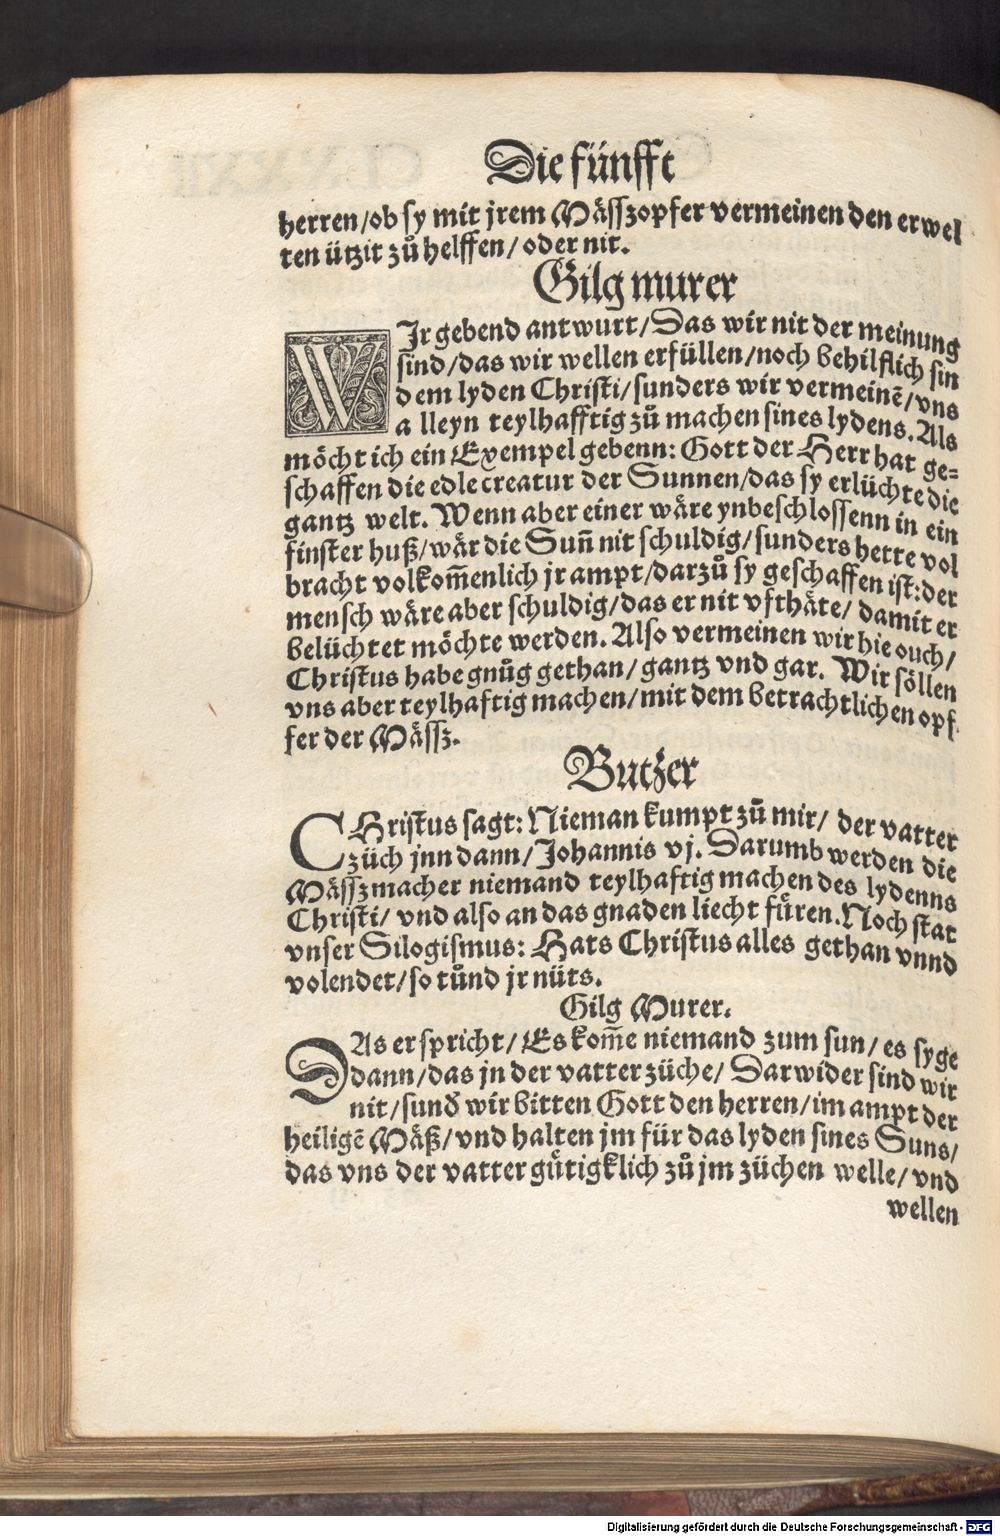 Die fünfft
herren/ob sy mit jrem Mässzopfer vermeinen den erwel
ten ützit zů helffen/ oder nit.
Gilg murer
WJr gebend antwurt/Das wir nit der meinung
sind/das wir wellen erfüllen/noch behilflich sin
dem lyden Christi/sunders wir vermeinē/vns
a lleyn teylhafftig zů machen sines lydens. Als
möcht ich ein Exempel gebenn: Gott der Herr hat ge-
schaffen die edle creatur der Sunnen/das sy erlüchte die
gantz welt. Wenn aber einer wäre ynbeschlossenn in ein
finster huß/wär die Suñ nit schuldig/sunders hette vol
bracht volkom̃enlich jr ampt/darzů sy geschaffen ist:der
mensch wäre aber schuldig/das er nit vfthäte/ damit er
belüchtet möchte werden. Also vermeinen wir hie ouch/
Christus habe gnůg gethan/gantz vnd gar. Wir söllen
vns aber teylhaftig machen/mit dem betrachtlichen opf
fer der Mässz.
Butzer
CHristus sagt: Nieman kumpt zů mir/ der vatter
züch jnn dann/Johannis vj. Darumb werden die
Mässzmacher niemand teylhaftig machen des lydenns
Christi/ vnd also an das gnaden liecht füren. Noch stat
vnser Silogismus: Hats Christus alles gethan vnnd
volendet/so tůnd jr nüts.
Gilg Murer.
DAs er spricht/Es kom̃e niemand zum sun/es syge
dann/das jn der vatter züche/ Darwider sind wir
nit/sunď wir bitten Gott den herren/im ampt der
heiligē Mäß/vnd halten jm für das lyden sines Suns/
das vns der vatter gütigklich zů jm züchen welle/vnd
wellen
Digitalisierung gefördert durch die Deutsche Forschungsgemeinschaft - DFG